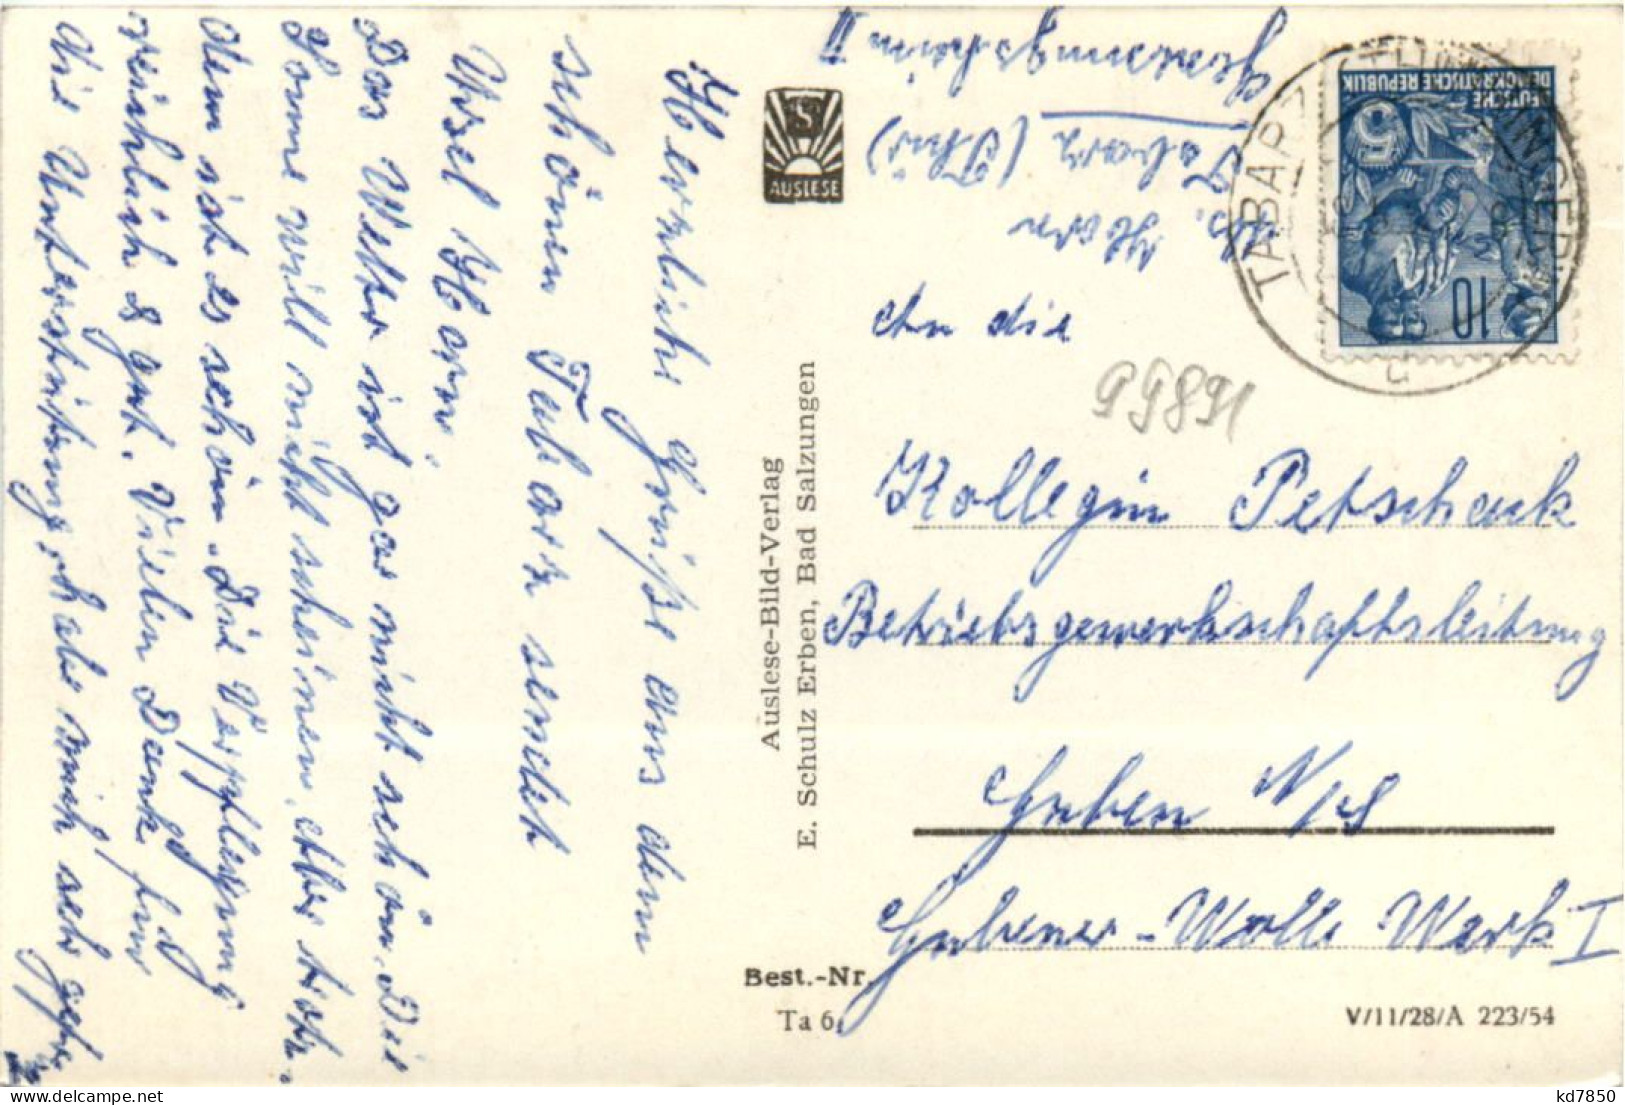 Herzliche Grüße aus dem
schönen Tabarz sendet
Ursel Horn.
Das Wetter ist gar nicht schön. Die
Sonne will nicht scheinen. Aber trotz-
dem ist es schön. Die Verpflegung
reichlich & gut. Vielen Dank für
die Unterstützung, habe mich sehr gefr.
AUSLESE
Auslese-Bild-Verlag
E. Schulz Erben, Bad Salzungen
Best.-Nr.
Ta 6
Abs. Horn
Tabarz (Thür)
II
DEUTSCHE
DEMOKRATISCHE REPUBLIK
5
10
TABARZ
An die
99891
Kollegin Petschauk
Betriebsgewerkschaftsleitung
Guben N/S
Gubener-Wolle Werk I
V/11/28/A 223/54
kd7850